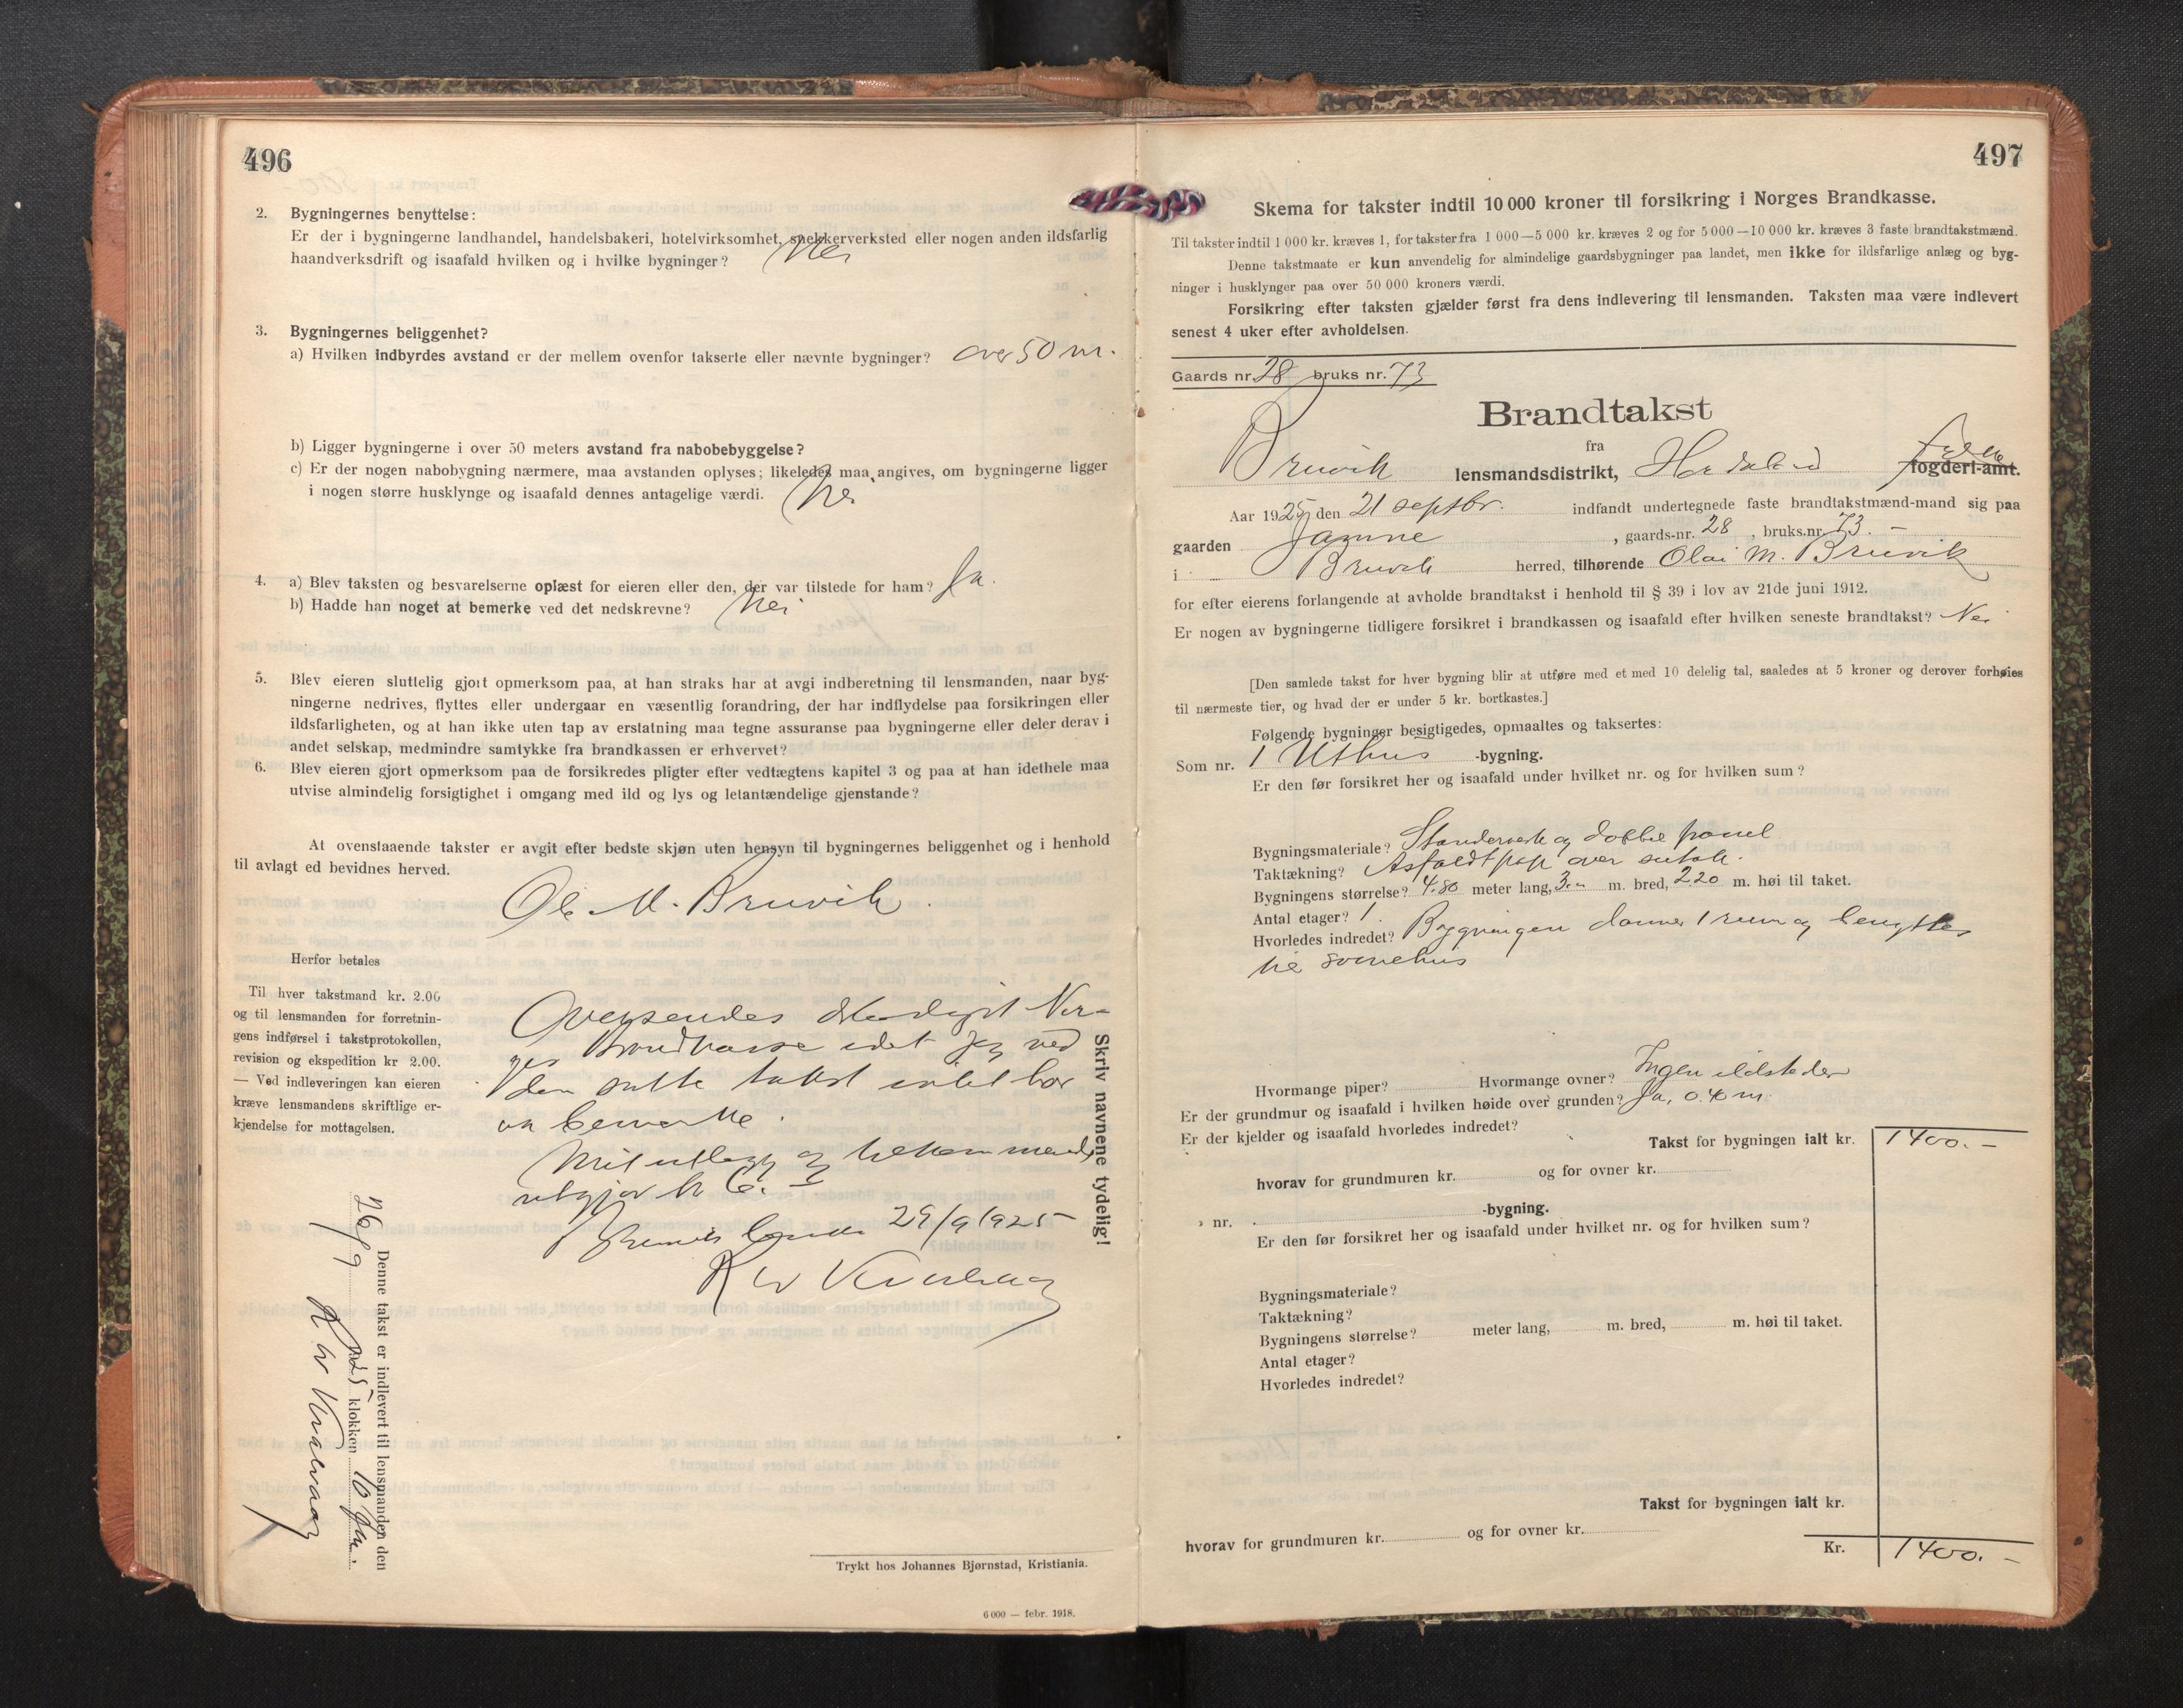 496
2. Bygningernes benyttelse:
Er der i bygningerne landhandel, handelsbakeri, hotelvirksomhet, snekkerverksted eller nogen anden ildsfarlig
haandverksdrift og isaafald hvilken og i hvilke bygninger? Nei
3. Bygningernes beliggenhet?
a) Hvilken indbyrdes avstand er der mellem ovenfor takserte eller nævnte bygninger? over 50 m.
b) Ligger bygningerne i over 50 meters avstand fra nabobebyggelse?
c) Er der nogen nabobygning nærmere, maa avstanden oplyses; likeledes maa angives, om bygningerne ligger
i nogen større husklynge og isaafald dennes antagelige værdi. Nei
4. a) Blev taksten og besvarelserne oplæst for eieren eller den, der var tilstede for ham? Ja.
b) Hadde han noget at bemerke ved det nedskrevne? Nei
5. Blev eieren sluttelig gjort opmerksom paa, at han straks har at avgi indberetning til lensmanden, naar byg-
ningerne nedrives, flyttes eller undergaar en væsentlig forandring, der har indflydelse paa forsikringen eller
ildsfarligheten, og at han ikke uten tap av erstatning maa tegne assuranse paa bygningerne eller deler derav i
andet selskap, medmindre samtykke fra brandkassen er erhvervet?
6. Blev eieren gjort opmerksom paa de forsikredes pligter efter vedtægtens kapitel 3 og paa at han idethele maa
utvise almindelig forsigtighet i omgang med ild og lys og letantændelige gjenstande?
At ovenstaaende takster er avgit efter bedste skjøn uten hensyn til bygningernes beliggenhet og i henhold
til avlagt ed bevidnes herved.
Ole M. Bruvik.
Herfor betales
Til hver takstmand kr. 2.00
og til lensmanden for forretnin-
gens indførsel i takstprotokollen,
revision og ekspedition kr 2.00.
— Ved indleveringen kan eieren
kræve lensmandens skriftlige er-
kjendelse for mottagelsen.
Oversendes Nor-
ges Brandkasse idet jeg ved
den satte takst intet har
at bemerke.
Mit utlegg og
utgjør kr 6.
29/9 1925
Skriv navnene tydelig!
Denne takst er indlevert til lensmanden den
26/9 1925 klokken 10 fm.
Trykt hos Johannes Bjørnstad, Kristiania.
6 000 — febr. 1918.
497
Skema for takster indtil 10 000 kroner til forsikring i Norges Brandkasse.
Til takster indtil 1 000 kr. kræves 1, for takster fra 1 000—5 000 kr. kræves 2 og for 5 000—10 000 kr. kræves 3 faste brandtakstmænd.
Denne takstmaate er kun anvendelig for almindelige gaardsbygninger paa landet, men ikke for ildsfarlige anlæg og byg-
ninger i husklynger paa over 50 000 kroners værdi.
Forsikring efter taksten gjælder først fra dens indlevering til lensmanden. Taksten maa være indlevert
senest 4 uker efter avholdelsen.
Gaards nr. 28 bruks nr. 73
Brandtakst
fra
Bruvik lensmandsdistrikt, Hordaland fylke fogderi-amt.
Aar 1925 den 21 septbr. indfandt undertegnede faste brandtakstmænd-mand sig paa
gaarden Jamne, gaards-nr. 28, bruks.nr. 73. —
i Bruvik herred, tilhørende Olai M. Bruvik
for efter eierens forlangende at avholde brandtakst i henhold til § 39 i lov av 21de juni 1912.
Er nogen av bygningerne tidligere forsikret i brandkassen og isaafald efter hvilken seneste brandtakst? Nei
[Den samlede takst for hver bygning blir at utføre med et med 10 delelig tal, saaledes at 5 kroner og derover forhøies
til nærmeste tier, og hvad der er under 5 kr. bortkastes.]
Følgende bygninger besigtigedes, opmaaltes og taksertes:
Som nr. 1 Uthus -bygning.
Er den før forsikret her og isaafald under hvilket nr. og for hvilken sum?
Bygningsmateriale? Standerverk og dobbel panel
Taktækning? Asfaldtpap over sutak.
Bygningens størrelse? 4.80 meter lang, 3.— m. bred, 2.20 m. høi til taket.
Antal etager? 1.
Hvorledes indredet? Bygningen danner 1 rum og benyttes
til svinehus
Hvormange piper? Hvormange ovner? Ingen ildsteder
Er der grundmur og isaafald i hvilken høide over grunden? Ja, 0.40 m.
Er der kjelder og isaafald hvorledes indredet?
Takst for bygningen ialt kr. 1400.—
hvorav for grundmuren kr. og for ovner kr.
» nr. -bygning.
Er den før forsikret her og isaafald under hvilket nr. og for hvilken sum?
Bygningsmateriale?
Taktækning?
Bygningens størrelse? meter lang, m. bred, m. høi til taket.
Antal etager?
Hvorledes indredet?
Takst for bygningen ialt kr.
hvorav for grundmuren kr. og for ovner kr.
Kr. 1400.—